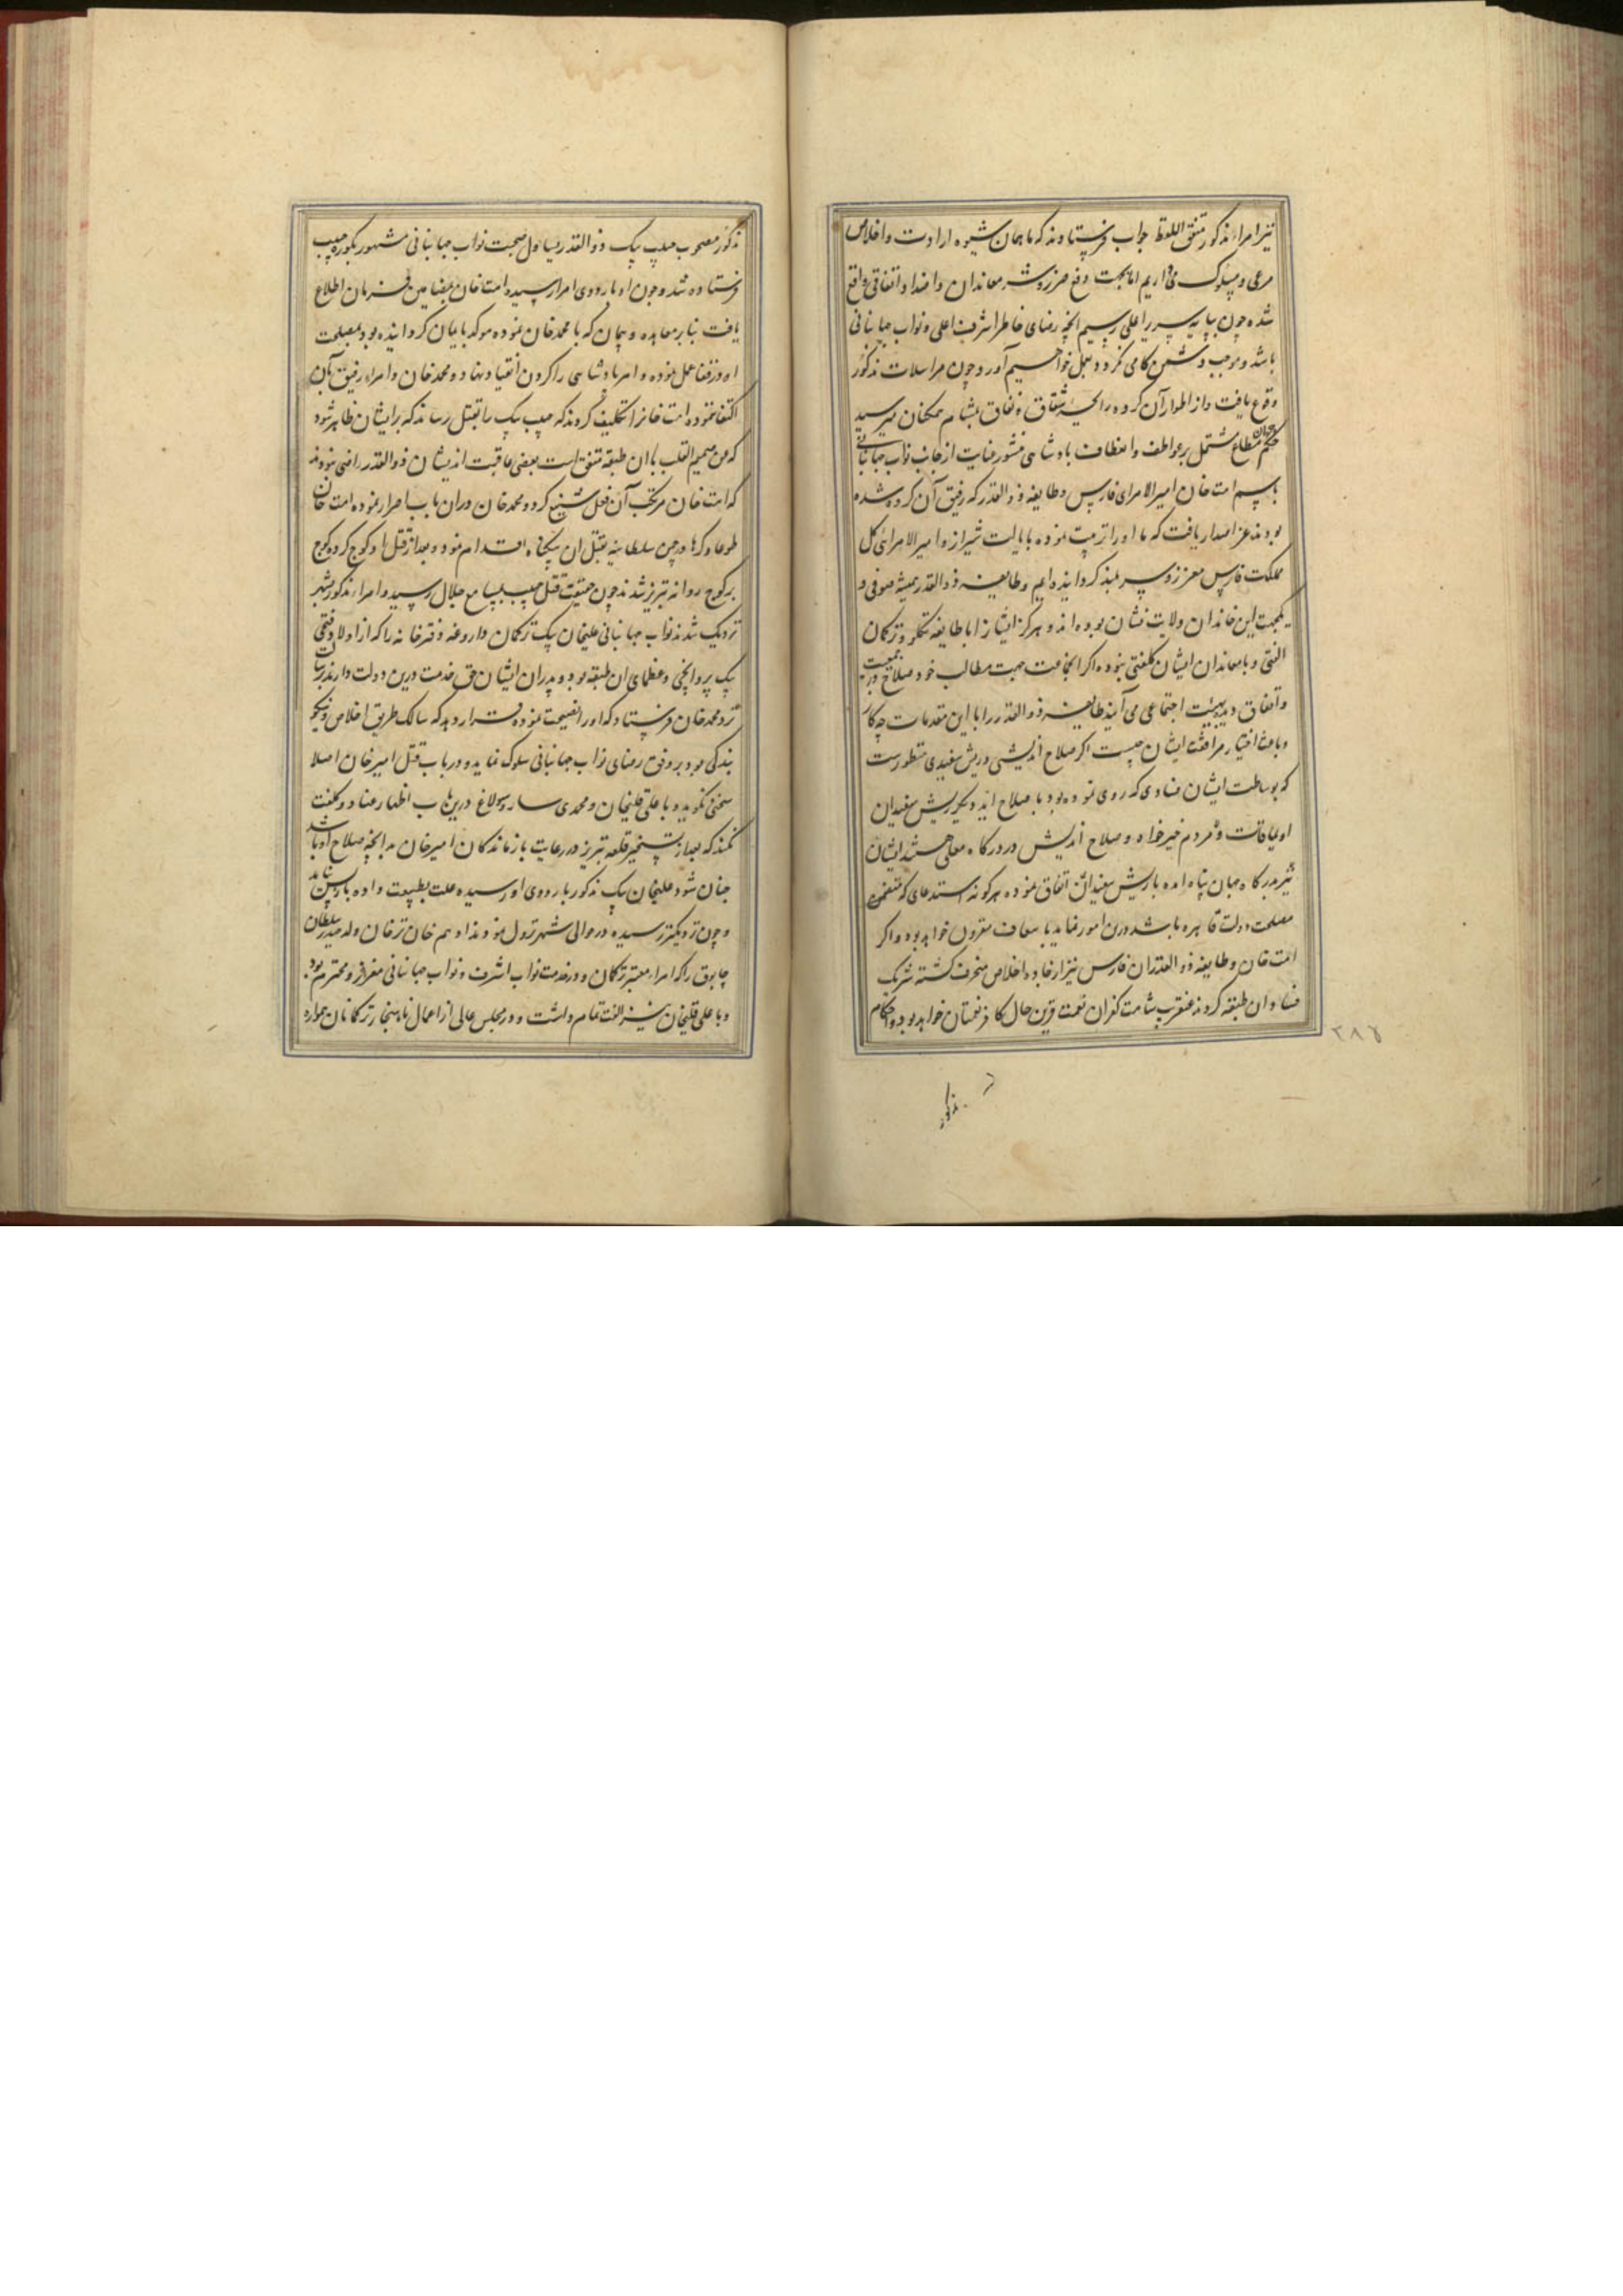 نیز امراء مذکور متفق اللفظ جواب فرستادند که ما همان شیوه ارادت و اخلاص
مرعی و مسلوک میداریم اما بجهت دفع ضرر و شر معاندان و اضداد اتفاقی واقع
شده چون بپایه سریر اعلی رسیم آنچه رضای خاطر اشرف اعلی و نواب جهانبانی
باشد و موجب دشمن کامی نگردد بعمل خواهیم آورد چون مراسلات مذکور
وقوع یافت و از اطوار آن گروه رایحه شقاق و نفاق بمشام همکنان میرسید
حکم جهان مطاع مشتمل بر عواطف و اعطاف پادشاهی منشور عنایت از جانب نواب جهانبانی
باسم امت خان امیرالامرای فارس و طایفه ذوالقدر که رفیق آن گروه شده
بودند عز اصدار یافت که ما او را تربیت نموده بایالت شیراز و امیرالامرائی کل
مملکت فارس معزز و سربلند گردانیده ایم و طایفه ذوالقدر همیشه صوفی و
یکجهت این خاندان ولایت نشان بوده اند و هرگز ایشان را با طایفه تکلو و ترکمان
الفتی و با معاندان ایشان کلفتی نبوده اگر انجماعت جهت مطالب خود صلاح در جمعیت
و اتفاق دیده بهیئت اجتماعی می آیند طایفه ذوالقدر را با این مقدمات چه کار
و باعث اختیار مرافقت ایشان چیست اگر صلاح اندیشی و ریش سفیدی منظورست
که بوساطت ایشان فسادی که روی نموده بود باصلاح آید دیگر ریش سفیدان
اویماقات و مردم خیرخواه و صلاح اندیش در درگاه معلی هستند ایشان
نیز بدرگاه جهان پناه آمده با ریش سفیدان اتفاق نموده هرگونه استدعای که متضمن
مصلحت دولت قاهره باشد درین امور نمایند باسعاف مقرون خواهد بود و اگر
امت خان و طایفه ذوالقدران فارس نیز از جاده اخلاص منحرف گشته شریک
فساد ان طبقه گردند عنقریب شامت کفران نعمت قرین حال کافر نعمتان خواهد بود و احکام
۲۸۶
مذکور
مذکور مصحوب حبیب بیک ذوالقدر یساول صحبت نواب جهانبانی مشهور بکور حبیب
فرستاده شد و چون او باردوی امرا رسید و امت خان بمضامین فرمان اطلاع
یافت بنابر معاهده و پیمان که با محمد خان نموده موکد بایمان گردانیده بود بمصلحت
او و رفقا عمل نموده و امر پادشاهی را گردن انقیاد ننهاد و محمد خان و امراء رفیق بآن
اکتفا ننموده امت خانرا تکلیف کردند که حبیب بیک را بقتل رساند که بر ایشان ظاهر شود
که من صمیم القلب با ان طبقه متفق است بعضی عاقبت اندیشان ذوالقدر راضی نبودند
که امت خان مرتکب آن فعل شنیع گردد محمد خان دران باب اصرار نموده امت خان
طوعا و کرها در چمن سلطانیه بقتل ان بیگناه اقدام نمود و بعد از قتل او کوچ کرده کوچ
بر کوچ روانه تبریز شدند چون حقیقت قتل حبیب بمسامع جلال رسید و امراء مذکور بشهر
نزدیک شدند نواب جهانبانی علیخان بیک ترکمان داروغه دفترخانه را که از اولاد فتحی
بیک پروانچی و عظمای ان طبقه بود و پدران ایشان حق خدمت درین دولت دارند برسالت
نزد محمد خان فرستاد که او را نصیحت نموده قرار دهد که سالک طریق اخلاص و نیکو
بندگی بوده بر وفق رضای نواب جهانبانی سلوک نماید و در باب قتل امیر خان اصلا
سخنی نگوید و با علی قلیخان و محمدی ساروسولاغ درین باب اظهار عناد و کلفت
نکند که بعد از تسخیر قلعه تبریز در رعایت بازماندگان امیر خان هر آنچه صلاح او باشد
چنان شود علیخان بیک مذکور باردوی او رسیده علت بطبیعت داده باز پس نیامد
و چون نزدیکتر رسیده در حوالی شهر نزول نمودند ادهم خان ترخان ولد حیدر سلطان
چابوق را که امراء معتبر ترکمان و در خدمت نواب اشرف و نواب جهانبانی معزز و محترم بود
و با علی قلیخان نیز الفت تمام داشت و در مجلس عالی از اعمال ناهنجار ترکمانان همواره